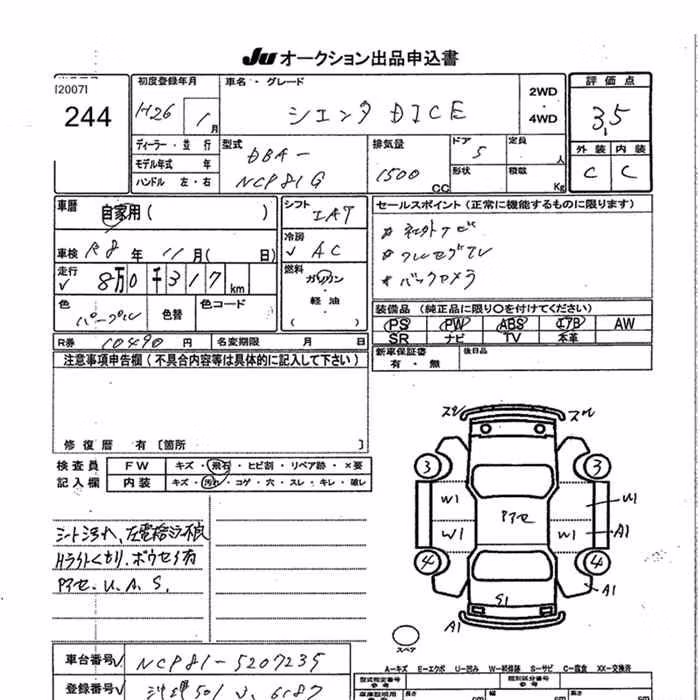 JU オークション出品申込書
[2007]
244
初度登録年月
H26 1月
車名・グレード
シエンタ DICE
2WD・4WD
評価点
3.5
ディーラー・並行
モデル年式 年
ハンドル 左・右
型式
DBA-
NCP81G
排気量
1500 CC
ドア
5
定員 人
形状
積載 Kg
外装 内装
C C
車歴
自家用( )
シフト
IAT
セールスポイント(正常に機能するものに限ります)
※ 社外ナビ
※ ワンセグTV
※ バックカメラ
車検 R8年 11月( 日)
冷房
AC
走行
8万0千317km
燃料
ガソリン
・
軽油
( )
色
パープル
色替
色コード
装備品(純正品に限り○を付けてください)
PS PW ABS エアB AW
SR ナビ TV 本革
R券 10490円
名変期限 月 日
新車保証書
有・無
後日品
注意事項申告欄(不具合内容等は具体的に記入して下さい)
修復歴 有〔箇所 〕
検査員
記入欄
FW キズ・飛石・ヒビ割・リペア跡・×要
内装 キズ・汚れ・コゲ・穴・スレ・キレ・破レ
シート汚れ、左電格ミラー不良
Hライトくもり、ボウセイ有
Pアセ、U、A、S、
スレ スレ
3 3
W1 U1
Pアセ
W1 W1 A1
4 4
S1 A1
A1
スペア
A-キズ E-エクボ U-凹み W-補修跡 S-サビ C-腐食 XX-交換済
車台番号 NCP81-5207235
登録番号 501 6187
型式指定番号
参考
類別区分番号
参考
長さ cm 幅 cm 高さ cm